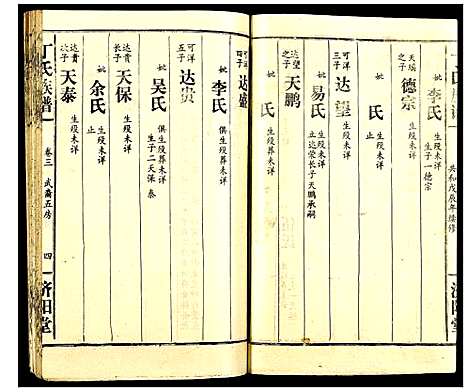 丁氏族谱
共和戊辰年续修
济阳堂
妣 李氏 生殁未详 生子一德宗
天瑞之子 德宗 生殁未详 止
可洋三子 达望 生殁未详
妣 易氏 生殁未详 立达荣长子天鹏承嗣
达望之子 天鹏 生殁未详
妣 氏
可洋四子 达盛
妣 李氏 俱生殁葬未详
可洋五子 达贵
妣 吴氏 俱生殁葬未详 生子二天保 泰
达贵长子 天保 生殁未详
妣 余氏 止
达贵次子 天泰 生殁未详
丁氏族谱
卷三 武斋五房 四
济阳堂